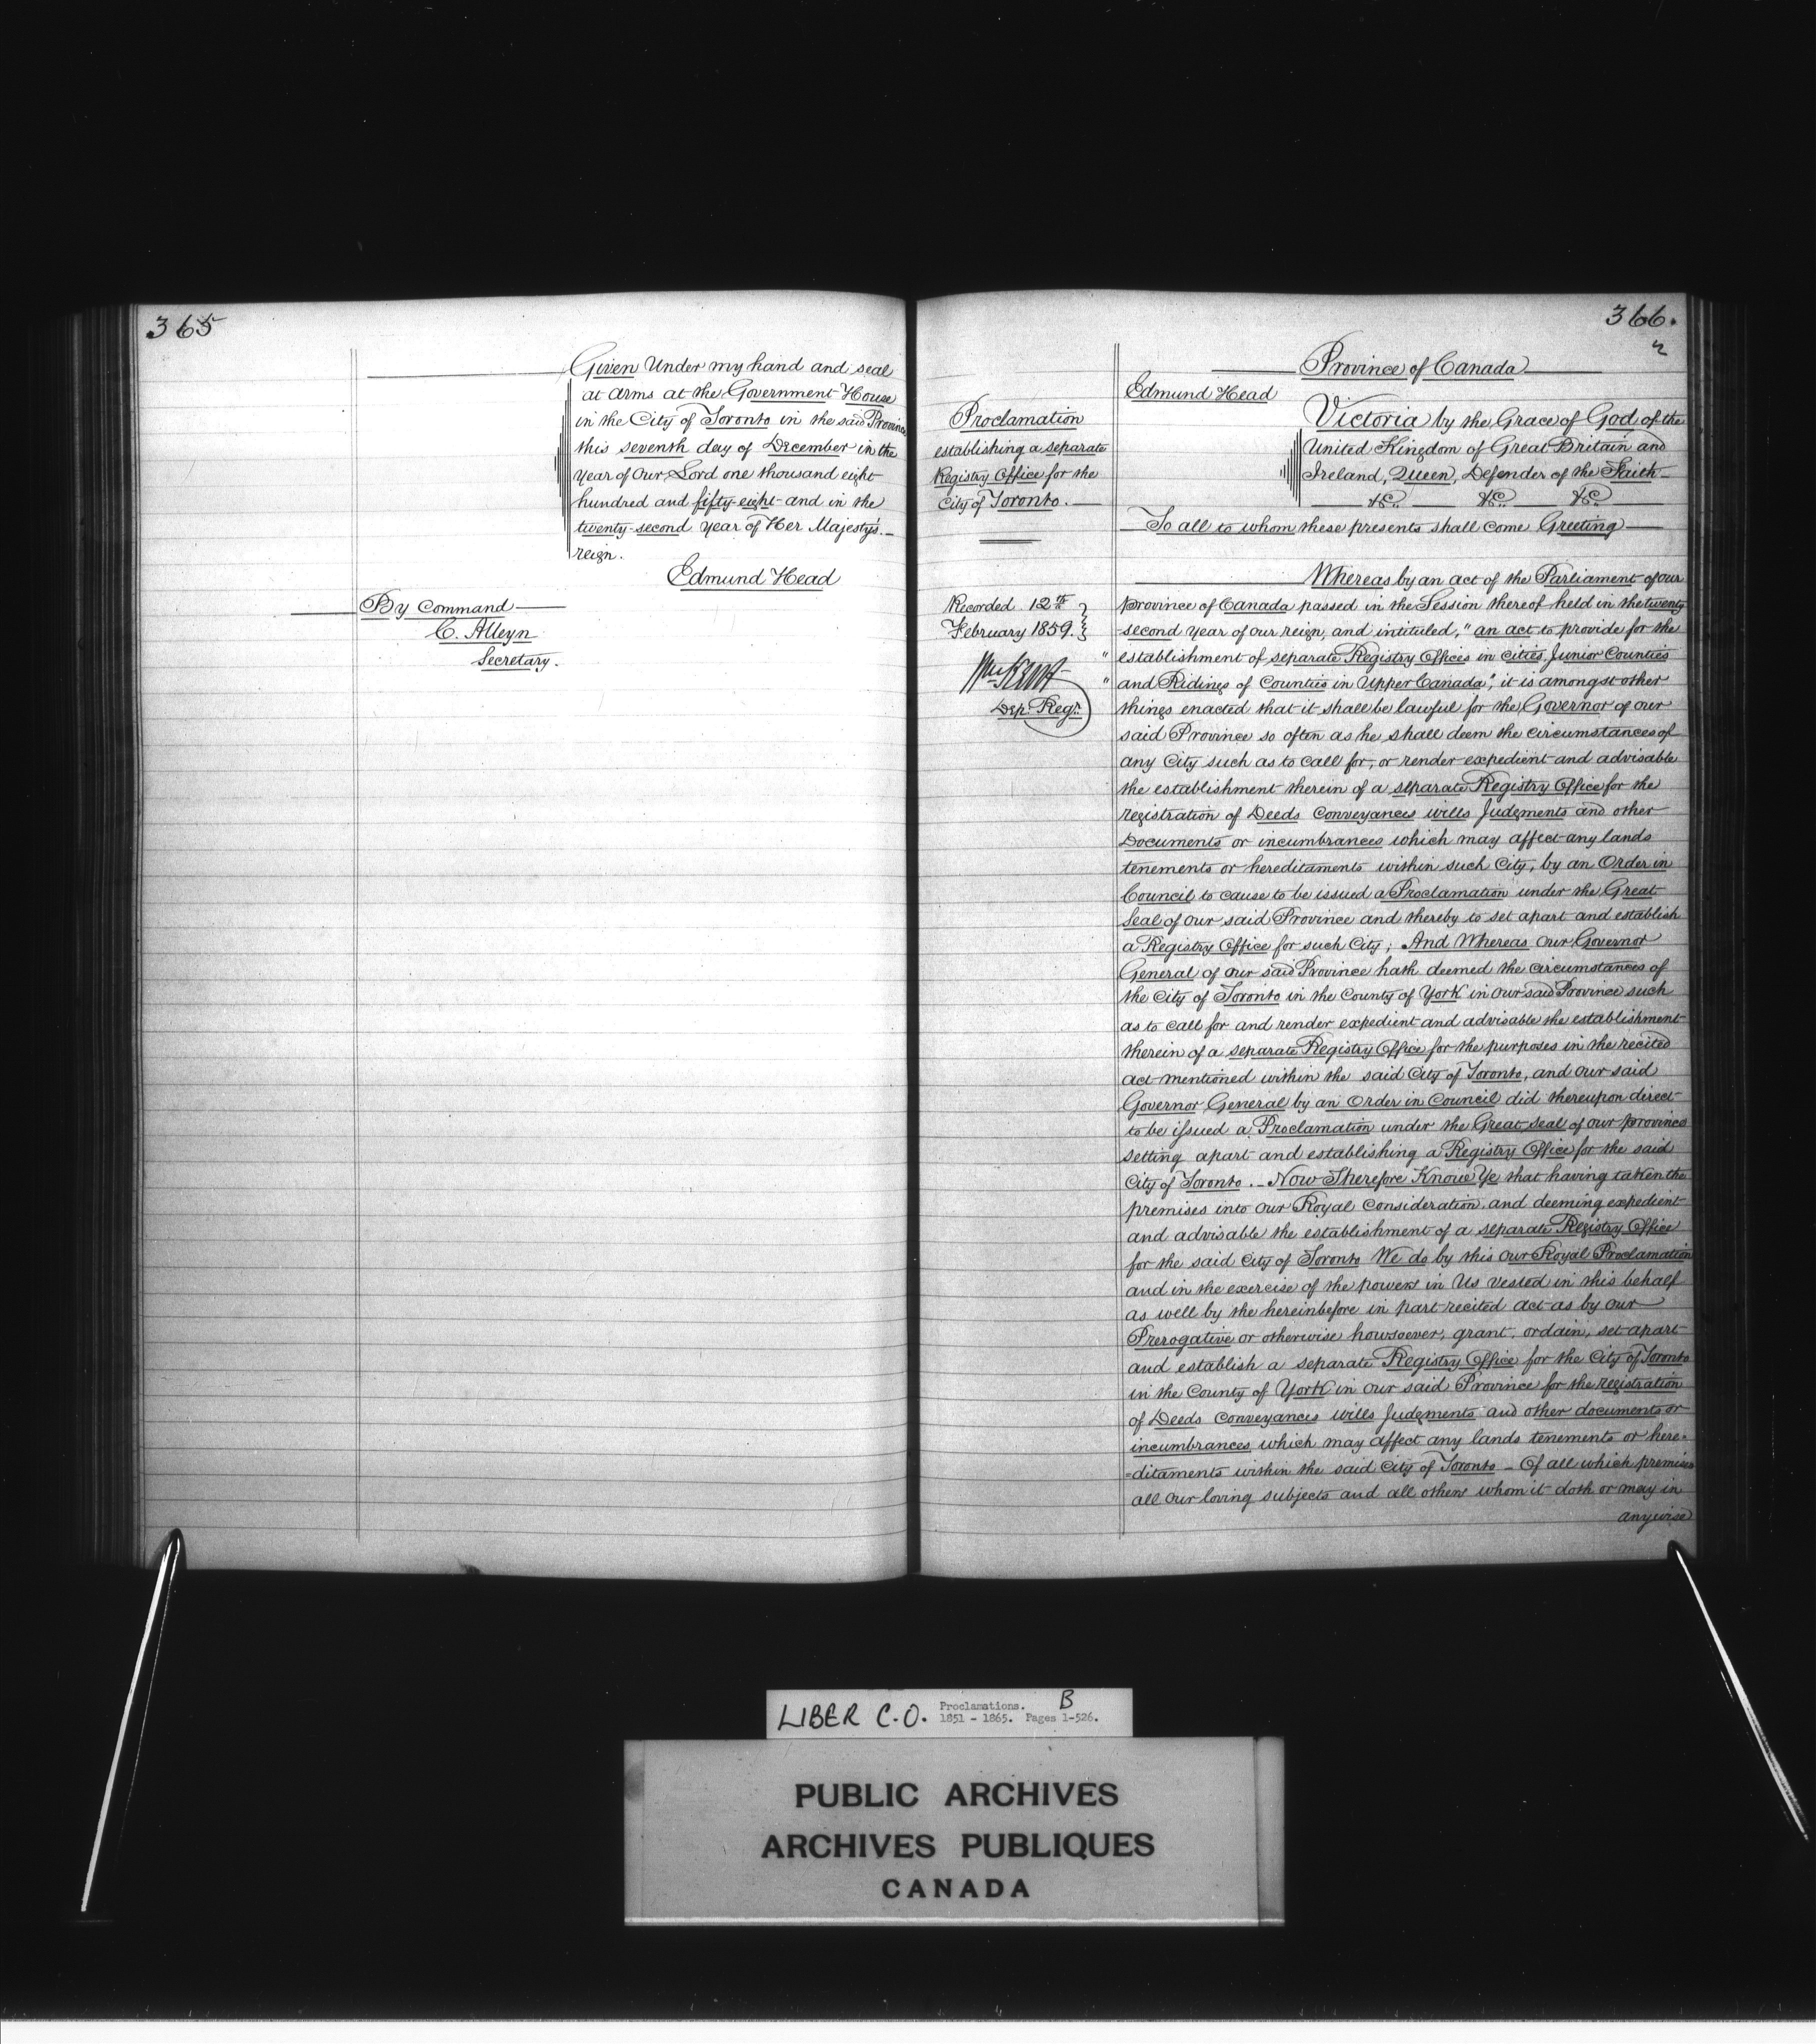 365
Given Under my hand and seal
at arms at the Government House
in the City of Toronto in the said Province
this seventh day of December in the
year of Our Lord one thousand eight
hundred and fifty-eight and in the
twenty-second year of Her Majesty's.-
reign.
Edmund Head
By Command
C. Alleyn
Secretary.
366.
Province of Canada
Edmund Head
Proclamation
establishing a separate
Registry Office for the
City of Toronto.
Recorded 12th
February 1859.
Dep. Regr.
Victoria by the Grace of God of the
United Kingdom of Great Britain and
Ireland, Queen, Defender of the Faith
&c. &c. &c.
To all to whom these presents shall come Greeting
Whereas by an act of the Parliament of our
Province of Canada passed in the Session thereof held in the twenty
second year of our reign, and intituled, "an act to provide for the
" establishment of separate Registry Offices in Cities, Junior Counties
" and Ridings of Counties in Upper Canada", it is amongst other
things enacted that it shall be lawful for the Governor of our
said Province so often as he shall deem the circumstances of
any City such as to call for, or render expedient and advisable
the establishment therein of a separate Registry Office for the
registration of Deeds Conveyances wills Judgments and other
Documents or incumbrances which may affect any lands
tenements or hereditaments within such City, by an Order in
Council to cause to be issued a Proclamation under the Great
Seal of our said Province and thereby to set apart and establish
a Registry Office for such City; And Whereas Our Governor
General of our said Province hath deemed the circumstances of
the City of Toronto in the County of York in our said Province such
as to call for and render expedient and advisable the establishment
therein of a separate Registry Office for the purposes in the recited
act mentioned within the said City of Toronto, and our said
Governor General by an Order in Council did thereupon direct
to be issued a Proclamation under the Great Seal of our province
setting apart and establishing a Registry Office for the said
City of Toronto.- Now Therefore Know Ye that having taken the
premises into our Royal Consideration and deeming expedient
and advisable the establishment of a separate Registry Office
for the said City of Toronto We do by this our Royal Proclamation
and in the exercise of the powers in Us vested in this behalf
as well by the hereinbefore in part recited act as by our
Prerogative or otherwise howsoever, grant, ordain, set apart
and establish a separate Registry Office for the City of Toronto
in the County of York in our said Province for the registration
of Deeds Conveyances wills Judgments and other documents or
incumbrances which may affect any lands tenements or here=
=ditaments within the said City of Toronto - Of all which premises
all our loving subjects and all others whom it doth or may in
anywise
LIBER C.O. Proclamations. B
1851 - 1865. Pages 1-526.
PUBLIC ARCHIVES
ARCHIVES PUBLIQUES
CANADA